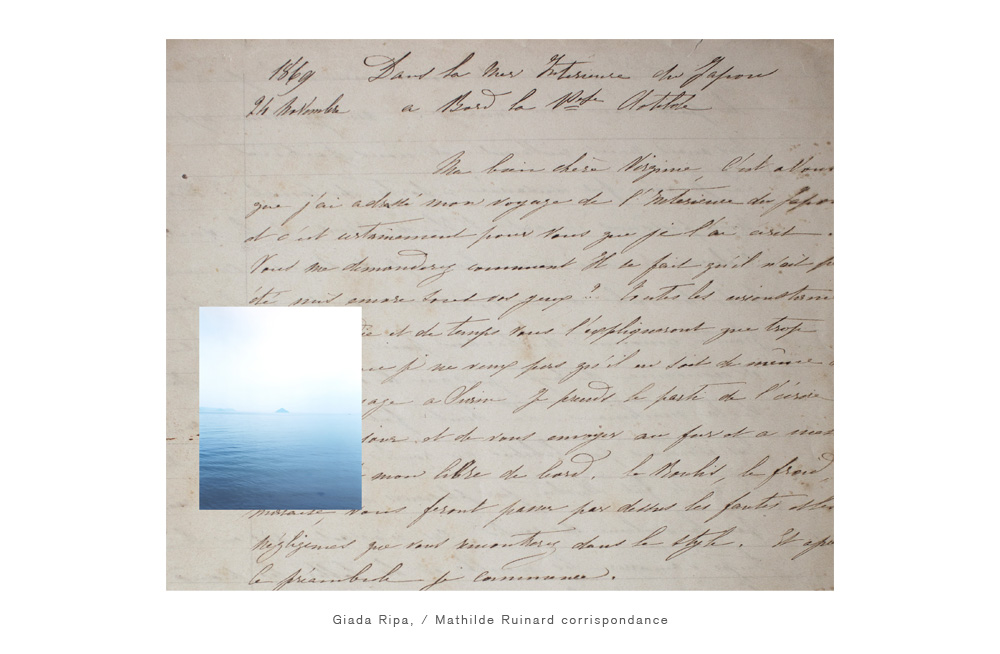 1869 Dans la Mer Interieure du Japon
24 Novembre a Bord la Clotilde
Ma bien chère Virginie, c'est a Vous
que j'ai adressé mon voyage de l'Interieure du Japon
et c'est certainement pour vous que je l'ai écrit.
Vous me demanderez comment Il se fait qu'il n'ait
été mis encore sous vos yeux ? Toutes les
et de temps vous l'expliqueront que trop
je ne veux pas qu'il en soit de même
a Je prends le parti de l'écrire
et de vous envoyer au fur et a
mon libre de bord. le Roulis, le froid,
vous feront passer par dessus les fautes
négligences que vous rencontrerez dans le style. Et
le préambule je commence.
Giada Ripa, / Mathilde Ruinard corrispondance